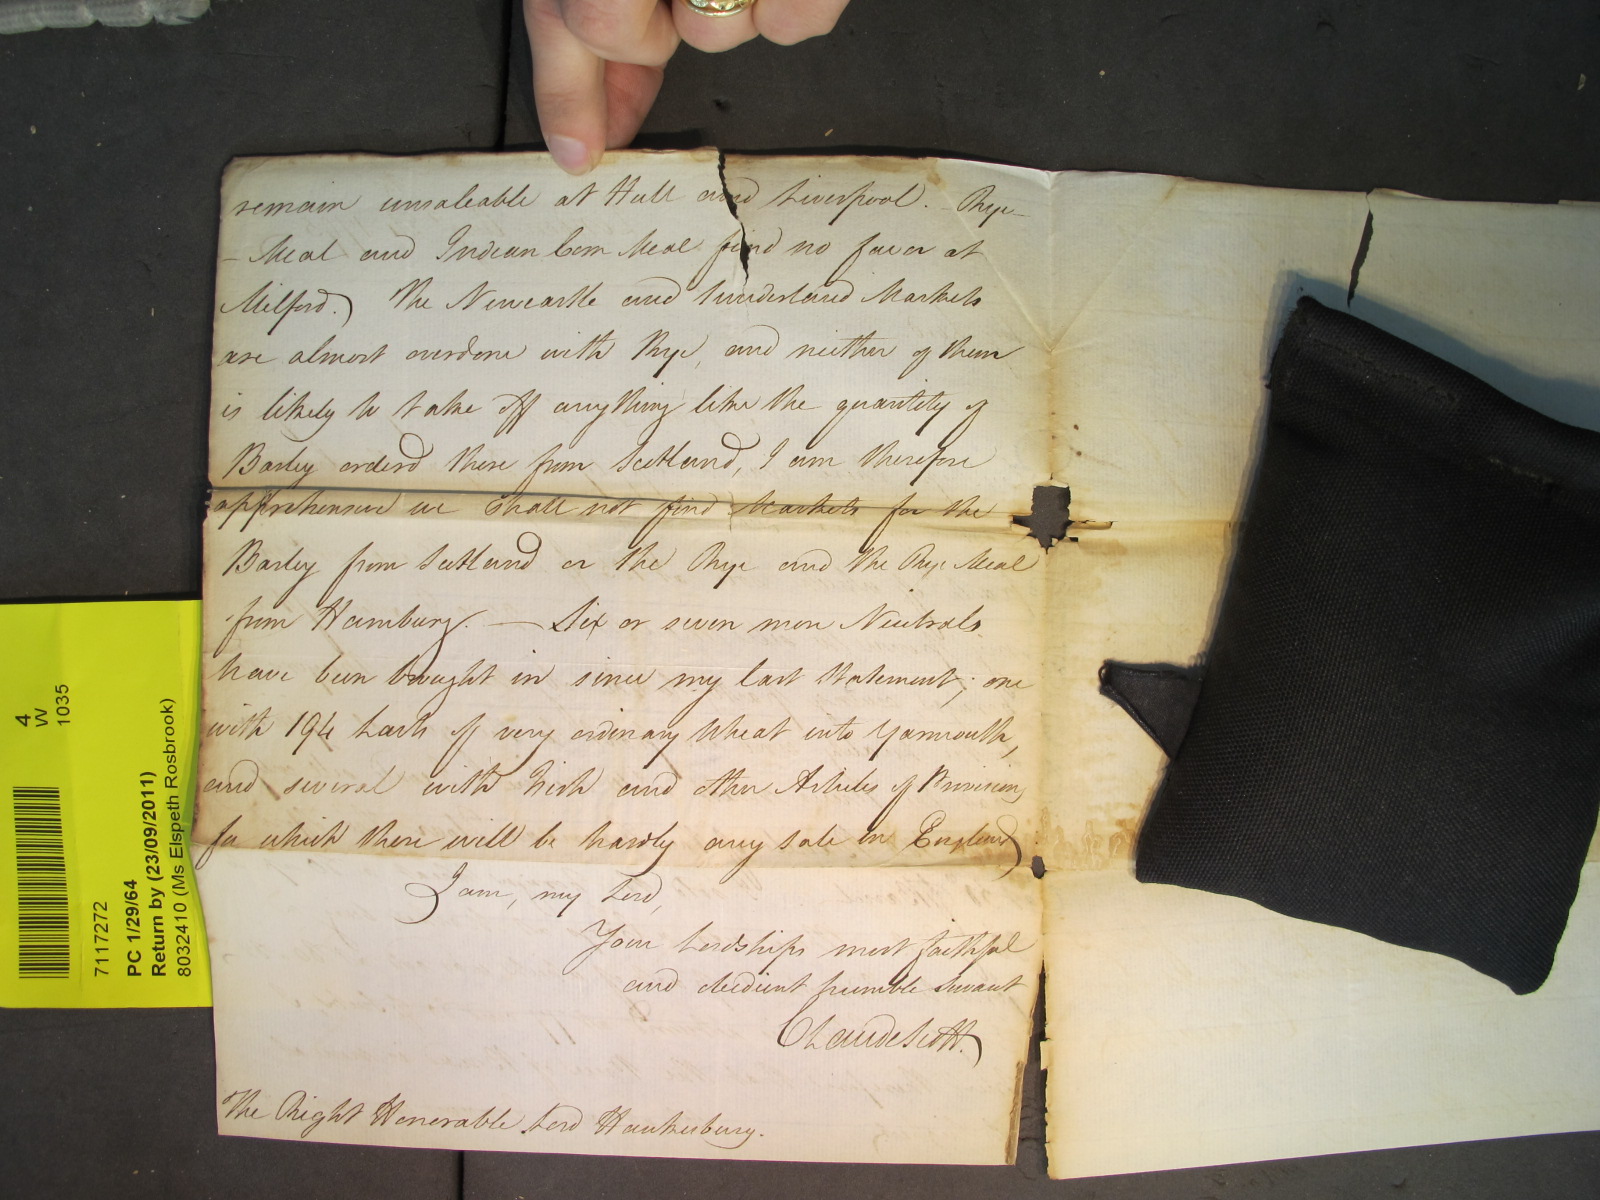 remain unsaleable at Hull and Liverpool. - Rye-
- Meal and Indian Corn Meal find no favor at
Milford.) The Newcastle and Sunderland Markets
are almost overdone with Rye, and neither of them
is likely to take off any thing like the quantity of
Barley orderd there from Scotland, I am therefore
apprehensive we shall not find Markets for the
Barley from Scotland or the Rye and the Rye Meal
from Hamburg. — Six or seven more Neutrals
have been bought in since my last Statement; one
with 194 Lasts of very ordinary Wheat into Yarmouth,
and several with Fish and other Articles of Provision,
for which there will be hardly any sale in England
I am, my Lord,
Your Lordships most faithful
and obedient humble Servant
Claude Scott.
The Right Honorable Lord Hawkesbury.
4
W
1035
7117272
PC 1/29/64
Return by (23/09/2011)
8032410 (Ms Elspeth Rosbrook)